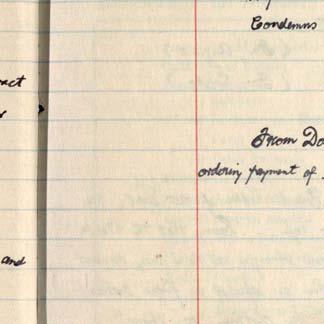 Condemns
From Do
ordering payment of
act
and